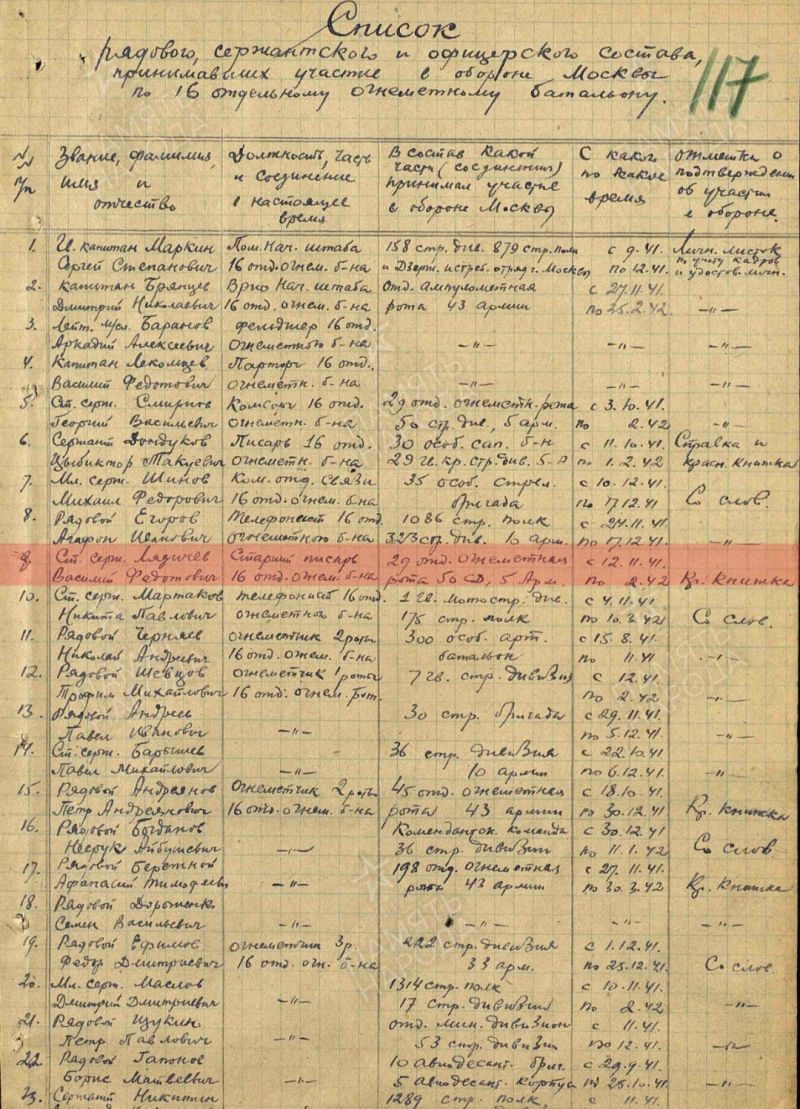 Список
рядового, сержантского и офицерского состава,
принимавших участие в обороне Москвы
по 16 отдельному огнеметному батальону.
117
№№ п/п Звание, фамилия, имя и отчество Должность, часть и соединение в настоящее время В состав какой части (соединения) принимал участие в обороне Москвы С какого по какое время Отметки о подтверждении об участии в обороне.
1. Гв. капитан Маркин Пом. Нач. штаба 158 стр. див. 879 стр. полк с 9.41. Личн. листок
Сергей Степанович 16 отд. огнем. б-на и Дзерж. истреб. отряд г. Москвы по 12.41. по учету кадров и удостов. личн.
2. Капитан Брянцев Врио Нач. штаба Отд. ампуломётная с 27.11.41.
Дмитрий Николаевич 16 отд. огнем. б-на рота 43 армии по 25.2.42 —"—
3. Лейт. м/сл. Баранов фельдшер 16 отд.
Аркадий Алексеевич огнеметного б-на —"— —"— —"—
4. Капитан Лекомцев Парторг 16 отд.
Василий Федотович огнеметн. б-на —"— —"— —"—
5. Ст. серж. Смирнов Комсорг 16 отд. 29 отд. огнеметн. рота с 3.10.41.
Георгий Васильевич огнеметн. б-на 50 стр. див., 5 арм. 2.42 —"—
6. Сержант Дондуков Писарь 16 отд. 30 особ. сап. б-н с 11.10.41. Справка и
огнеметн. б-на 29 гв. кр. стр. див. 5-А по 1.2.42 красн. книжка
7. Мл. серж. Шинов Ком. отд. связи 35 особ. стрел. с 10.12.41.
Михаил Федорович 16 отд. огнем. б-на бригада по 17.12.41 Со слов.
8. Рядовой Егоров Телефонист 16 отд. 1086 стр. полк с 24.11.41.
Агафон Иванович огнеметного б-на 323 стр. див. 10 арм. по 17.12.41 —"—
9. Ст. серж. Лядичев Старший писарь 29 отд. огнеметная с 12.11.41
Василий Федотович 16 отд. огнем. б-на рота 50 СД, 5 Арм. по 2.42 Кр. Книжка
10. Ст. серж. Мартаков телефонист 16 отд. 1 гв. мотостр. див. с 4.11.41
Никита Павлович огнеметного б-на 175 стр. полк по 10.3.42 Со слов.
11. Рядовой Черняев огнеметчик 2 роты 300 особ. арт. с 15.8.41.
Николай Андреевич 16 отд. огнем. б-на батальон по 11.41 —"—
12. Рядовой Шевцов огнеметчик 1 роты 7 гв. стр. дивизия с 12.41.
Трофим Михайлович 16 отд. огнем. бат. по 2.42 —"—
13. Рядовой Андреев 30 стр. бригада с 29.11.41.
Павел Иванович —"— по 5.12.41 —"—
14. Ст. серж. Барышев 36 стр. дивизия с 22.10.41
Павел Михайлович —"— 10 армии по 6.12.41. —"—
15. Рядовой Андреянов Огнеметчик 2 роты 45 отд. огнеметная с 18.10.41.
Петр Андреянович 16 отд. огнем. б-на рота 43 армии по 30.12.41 Кр. Книжка
16. Рядовой Богданов Комендантск. команда с 30.12.41
—"— 36 стр. дивизии по 11.1.42 Со слов.
17. Рядовой Бережной 198 отд. огнеметная с 27.11.41.
Афанасий Тимофеев. —"— рота 43 армии по 30.3.42 Кр. Книжка
18. Рядовой Дороженко
Семен Васильевич —"— —"— —"— —"—
19. Рядовой Ефимов огнеметчик 3 р. 222 стр. дивизия с 1.12.41.
Федор Дмитриевич 16 отд. огн. б-на 33 арм. по 25.12.41. Со слов.
20. Мл. серж. Маслов 1314 стр. полк с 10.11.41.
Дмитрий Дмитриевич —"— 17 стр. дивизия по 2.42 —"—
21. Рядовой Щукин отд. мин. дивизион с 11.41.
Петр Павлович —"— 53 стр. дивизии по 12.41. —"—
22. Рядовой Гапонов 10 авиадесант. бриг. с 29.9.41.
Борис Матвеевич —"— 5 авиадесант. корпуса по 25.10.41 —"—
23. Сержант Никитин 1289 стр. полк, с 11.